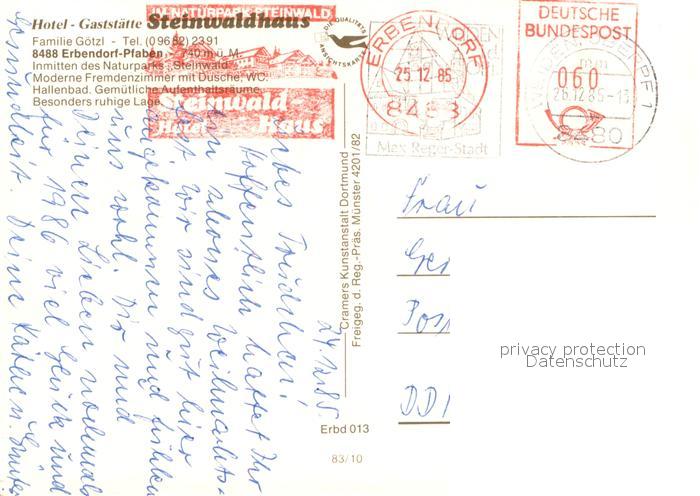 Hotel - Gaststätte Steinwaldhaus
Familie Götzl - Tel. (0 96 82) 23 91
8488 Erbendorf-Pfaben - 740 m ü. M.
Inmitten des Naturparks „Steinwald"
Moderne Fremdenzimmer mit Dusche, WC.
Hallenbad. Gemütliche Aufenthaltsräume.
Besonders ruhige Lage.
IM NATURPARK STEINWALD
Steinwald-
Hotel Haus
DIE QUALITÄTS
ANSICHTSKARTE
ERBENDORF
25.12.85
8488
Max-Reger-Stadt
DEUTSCHE
BUNDESPOST
060
26.12.85-13
8480
24.12.85
Hoffentlich hattet Ihr
ein schönes Weihnachts-
fest. Wir sind gut hier
angekommen und fühlen
uns wohl. Dir und
Deinen Lieben nochmals
für 1986 viel Glück und
Gesundheit. Deine
Cramers Kunstanstalt Dortmund
Freigeg. d. Reg.-Präs. Münster 4201/82
Erbd 013
83/10
Frau
DD
privacy protection
Datenschutz